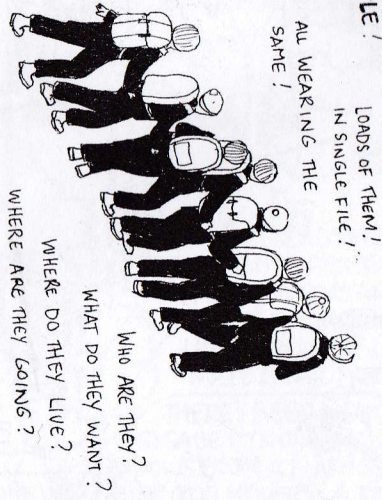 LE!
LOADS OF THEM!
IN SINGLE FILE!
ALL WEARING THE
SAME!
WHO ARE THEY?
WHAT DO THEY WANT?
WHERE DO THEY LIVE?
WHERE ARE THEY GOING?